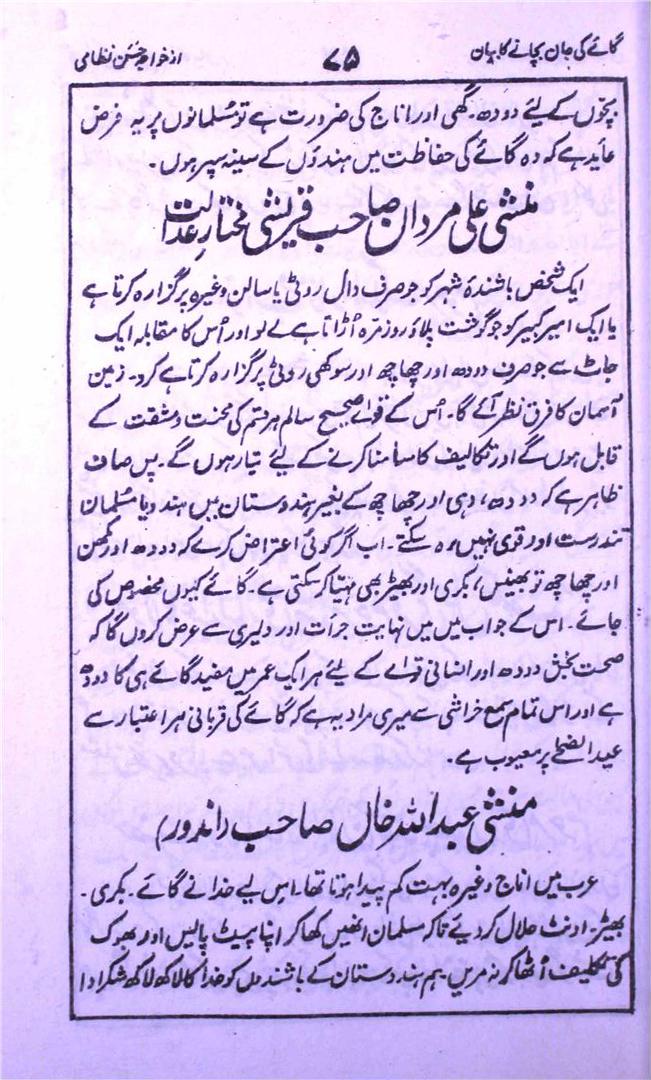 گائے کی جان بچانے کا بیان
۷۵
از خواجہ حسن نظامی
بچوں کے لیئے دودھ۔ گھی اور اناج کی ضرورت ہے تو مسلمانوں پر یہ فرض
عاید ہے کہ وہ گائے کی حفاظت میں ہندوؤں کے سینہ سپر ہوں۔
منشی علی مردان صاحب قریشی مختارِ عدالت
ایک شخص باشندۂ شہر کو جو صرف دال روٹی یا سالن وغیرہ پر گزارہ کرتا ہے
یا ایک امیر کبیر کو جو گوشت پلاؤ روز مرہ اُڑاتا ہے لے لو اور اُس کا مقابلہ ایک
جاٹ سے جو صرف دودھ اور چھاچھ اور سوکھی روٹی پر گزارہ کرتا ہے کرو۔ زمین
آسمان کا فرق نظر آئے گا۔ اُس کے قوائے صحیح سالم ہر قسم کی محنت و مشقت کے
قابل ہوں گے اور تکالیف کا سامنا کرنے کے لیئے تیار ہوں گے۔ پس صاف
ظاہر ہے کہ دودھ، دہی اور چھاچھ کے بغیر ہندوستان میں ہندو یا مسلمان
تندرست اور قوی نہیں رہ سکتے۔ اب اگر کوئی اعتراض کرے کہ دودھ اور مکھن
اور چھاچھ تو بھینس، بکری اور بھیڑ بھی مہیّا کر سکتی ہے۔ گائے کیوں مخصوص کی
جائے۔ اس کے جواب میں میں نہایت جرأت اور دلیری سے عرض کروں گا کہ
صحت بخش دودھ اور انسانی قواے کے لیئے ہر ایک عمر میں مفید گائے ہی کا دودھ
ہے اور اس تمام سمع خراشی سے میری مراد یہ ہے کہ گائے کی قربانی ہر اعتبار سے
عید الضحٰے پر معیوب ہے۔
منشی عبد اللہ خاں صاحب (اندور)
عرب میں اناج وغیرہ بہت کم پیدا ہوتا تھا۔ اس لیے خدا نے گائے۔ بکری۔
بھیڑ۔ اونٹ حلال کر دیئے تاکہ مسلمان انھیں کھا کر اپنا پیٹ پالیں اور بھوک
کی تکلیف اُٹھا کر نہ مریں۔ ہم ہندوستان کے باشندوں کو خدا کا لاکھ لاکھ شکر ادا